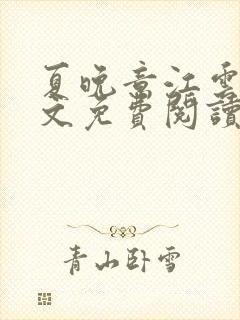 夏晚章江雲
文免費閱讀
青山卧雪